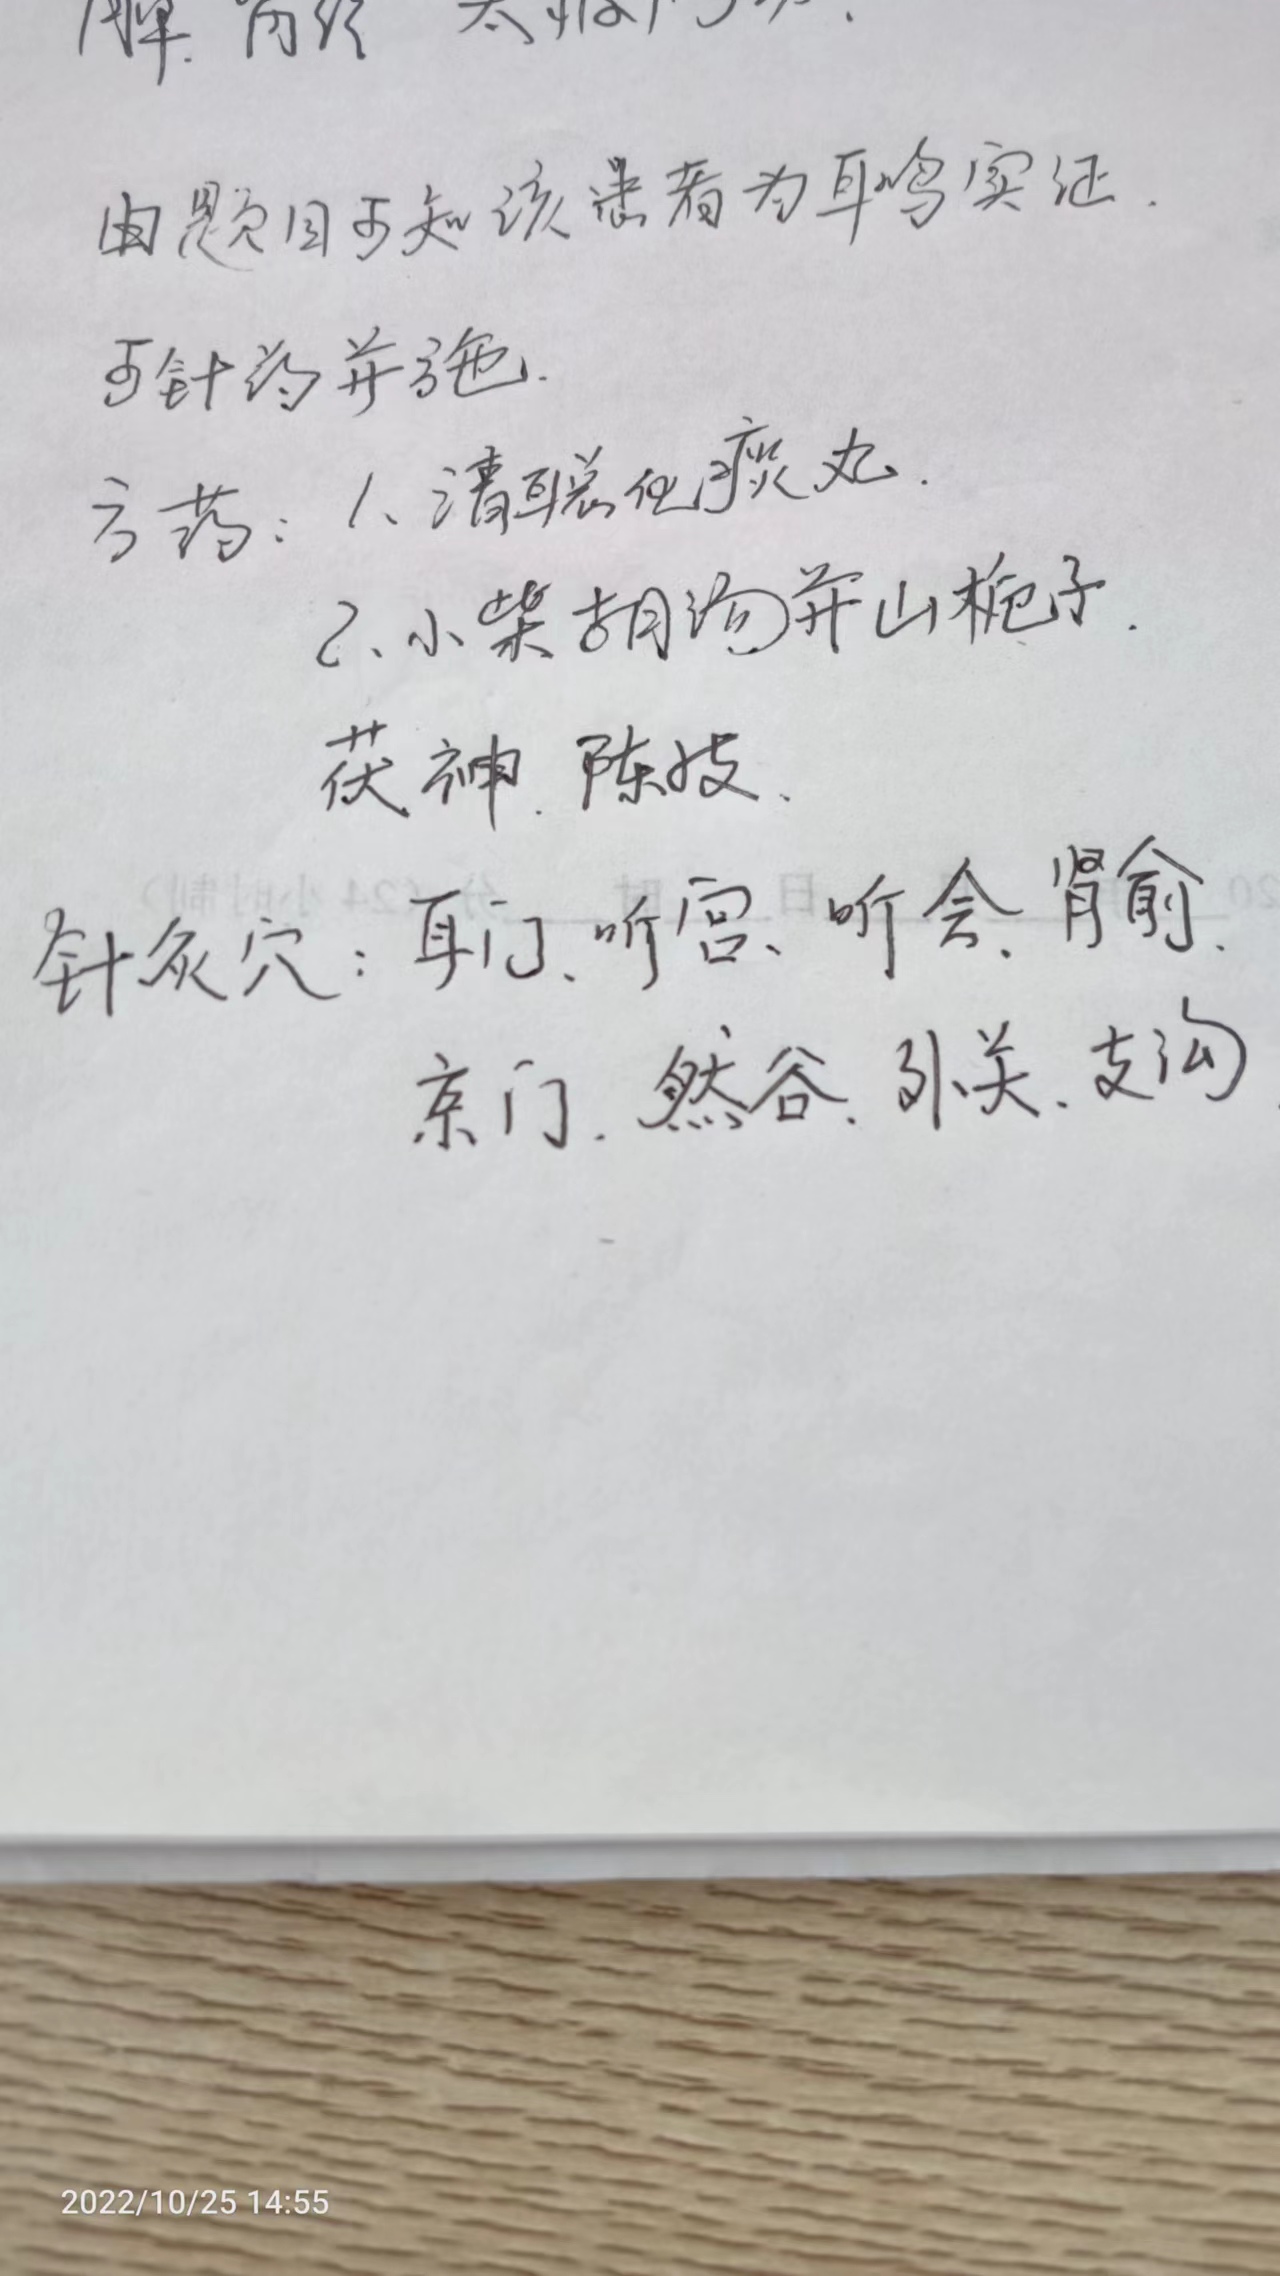 由题目可知该患者为耳鸣实证.
可针药并施.
方药：1、清聪化痰丸.
2、小柴胡汤并山栀子.
茯神.陈皮.
20 日 时 分（24小时制）
针灸穴：耳门、听宫、听会、肾俞、
京门.然谷.外关.支沟.
2022/10/25 14:55